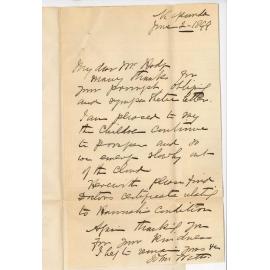 Kapunda
June 2 - 1899
My dear Mr
Many thanks for
your prompt
and sympathetic letter.
I am pleased to say
the Children continue
to prosper and so
we emerge slowly out
of the Cloud
Herewith please find
Doctors Certificate
to Hannahs Condition
Again thanking you
for your kindness
I beg to remain Yours
John